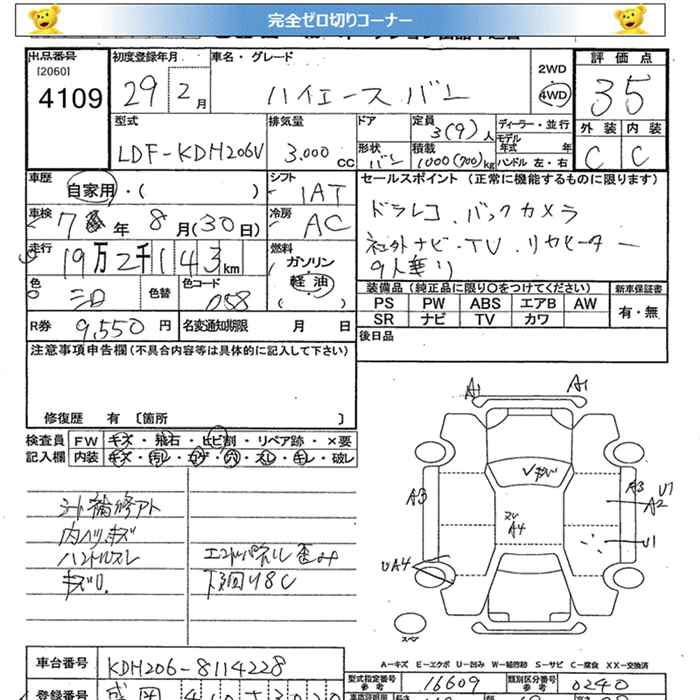 完全ゼロ切りコーナー
出品番号 初度登録年月 車名・グレード 2WD 評価点
[2060] 4109
29年 2月 ハイエース バン 4WD 35
型式 排気量 ドア 定員 3(9)人 ディーラー・並行 外装 内装
LDF-KDH206V 3.000cc 形状 バン 積載 1000(700)kg モデル年式 年 ハンドル 左・右 C C
車歴 自家用・( ) シフト IAT セールスポイント (正常に機能するものに限ります)
車検 7年 8月(30日) 冷房 AC ドラレコ、バックカメラ
走行 19万2千143km 燃料 ガソリン 社外ナビ・TV・リヤヒーター
軽油 ( ) 9人乗り
色 シロ 色替 色コード 058 装備品 (純正品に限り○をつけてください) 新車保証書
PS PW ABS エアB AW 有・無
SR ナビ TV カワ
R券 9,550円 名変通知期限 月 日 後日品
注意事項申告欄(不具合内容等は具体的に記入して下さい)
修復歴 有 〔箇所 〕
検査員 FW キズ・飛石・ヒビ割・リペア跡・×要
記入欄 内装 キズ・汚レ・コゲ・穴・スレ・キレ・破レ
シート補修アト
内ハリキズ
ハンドルスレ
キズ
エンドパネル歪み
下回りSC
A1 A1
A3 A3 U1
A2
A4
U1
UA4
スペア
A-キズ E-エクボ U-凹み W-補修跡 S-サビ C-腐食 XX-交換済
車台番号 KDH206-8114228 型式指定番号 参考 16609 類別区分番号 参考 0240
登録番号 盛岡